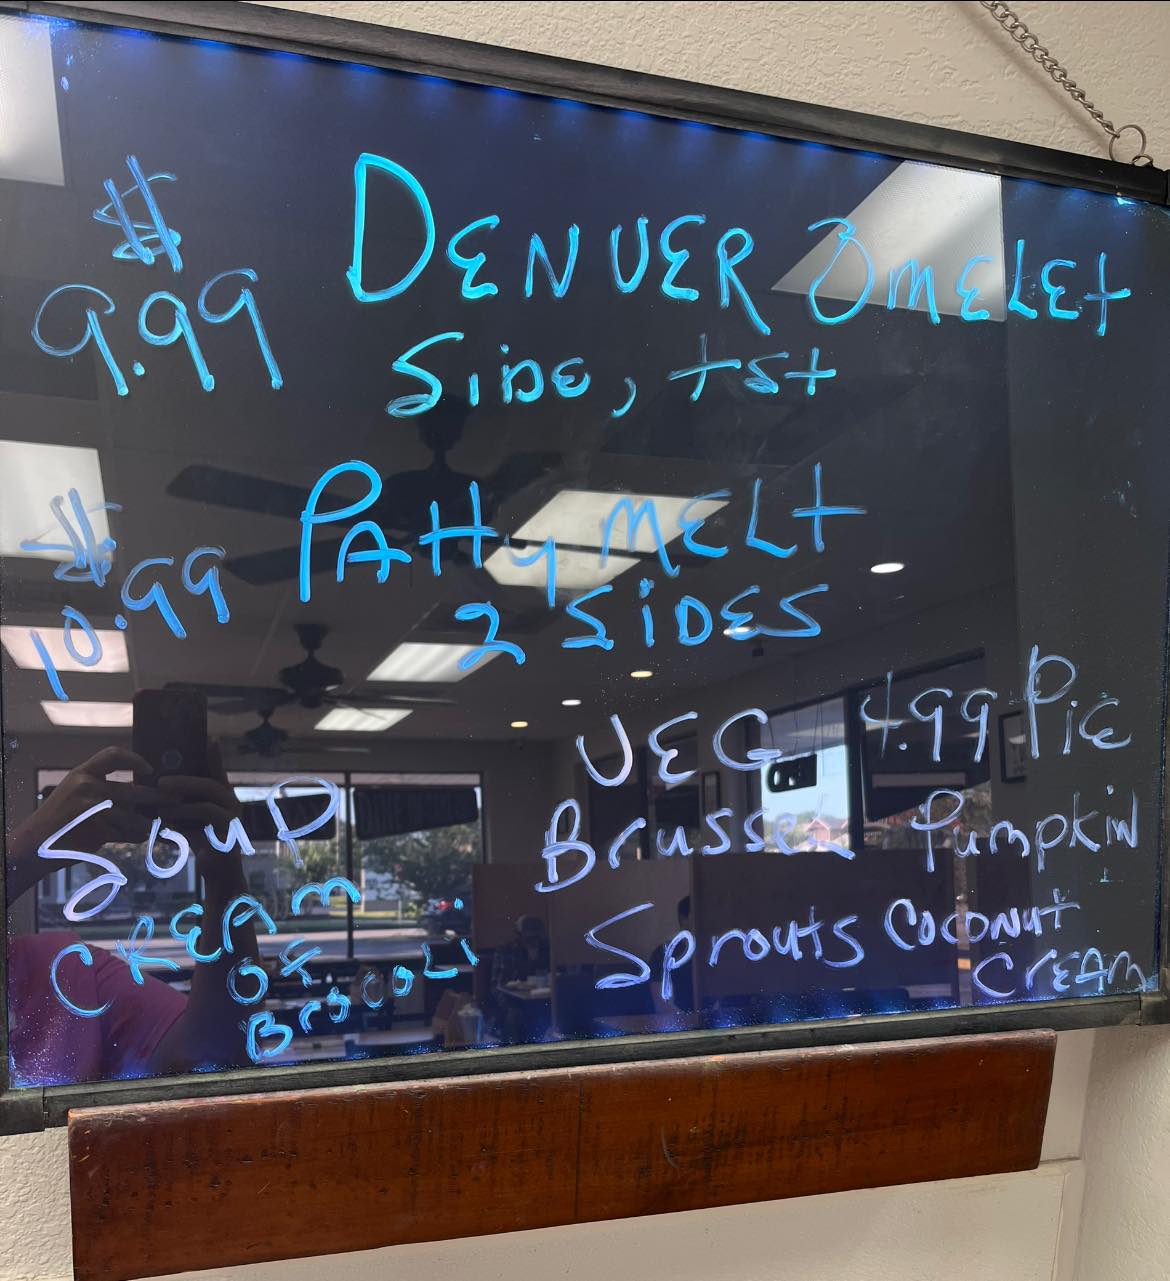 $ 9.99 DENVER OMELET
SiDE, tst
$ 10.99 PAtty MELT
2 SiDES
SouP
CREAM
OF
BrocoLi
VEG
Brussel
Sprouts
4.99 PiE
Pumpkin
Coconut
CREAM